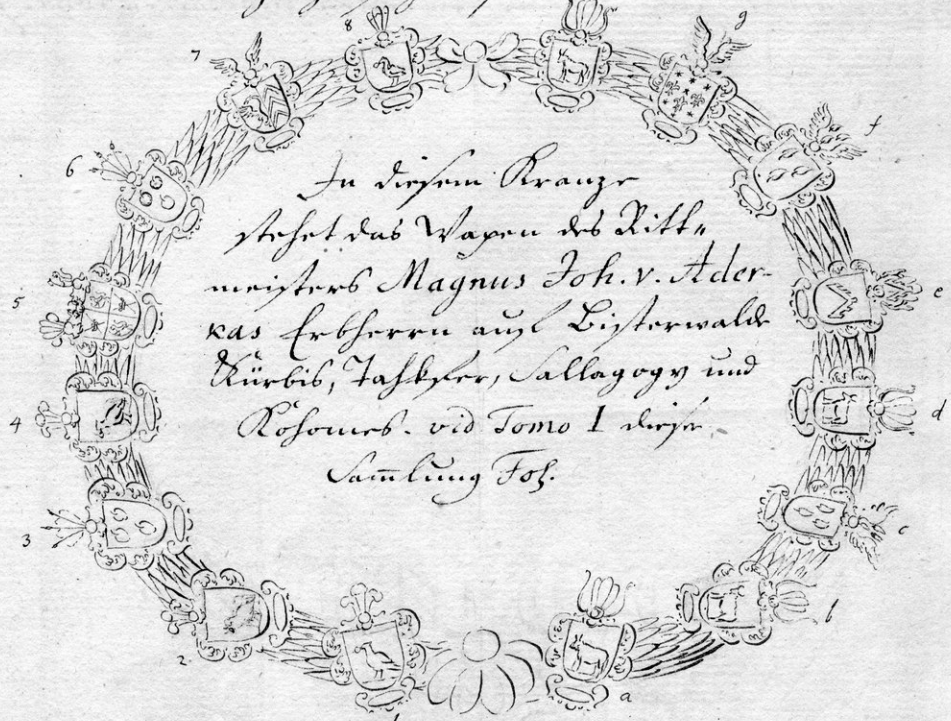 8
9
7
f
6
In diesem Kranze
stehet das Wapen des Ritt-
meisters Magnus Joh. v. Ader-
kas Erbherrn auf Bisterwalde
e
5
Kürbis, Tahkser, Sallagogy und
Kohomes. vid Tomo I dieser
4
d
Sammlung Fol.
3
c
b
2
a
1